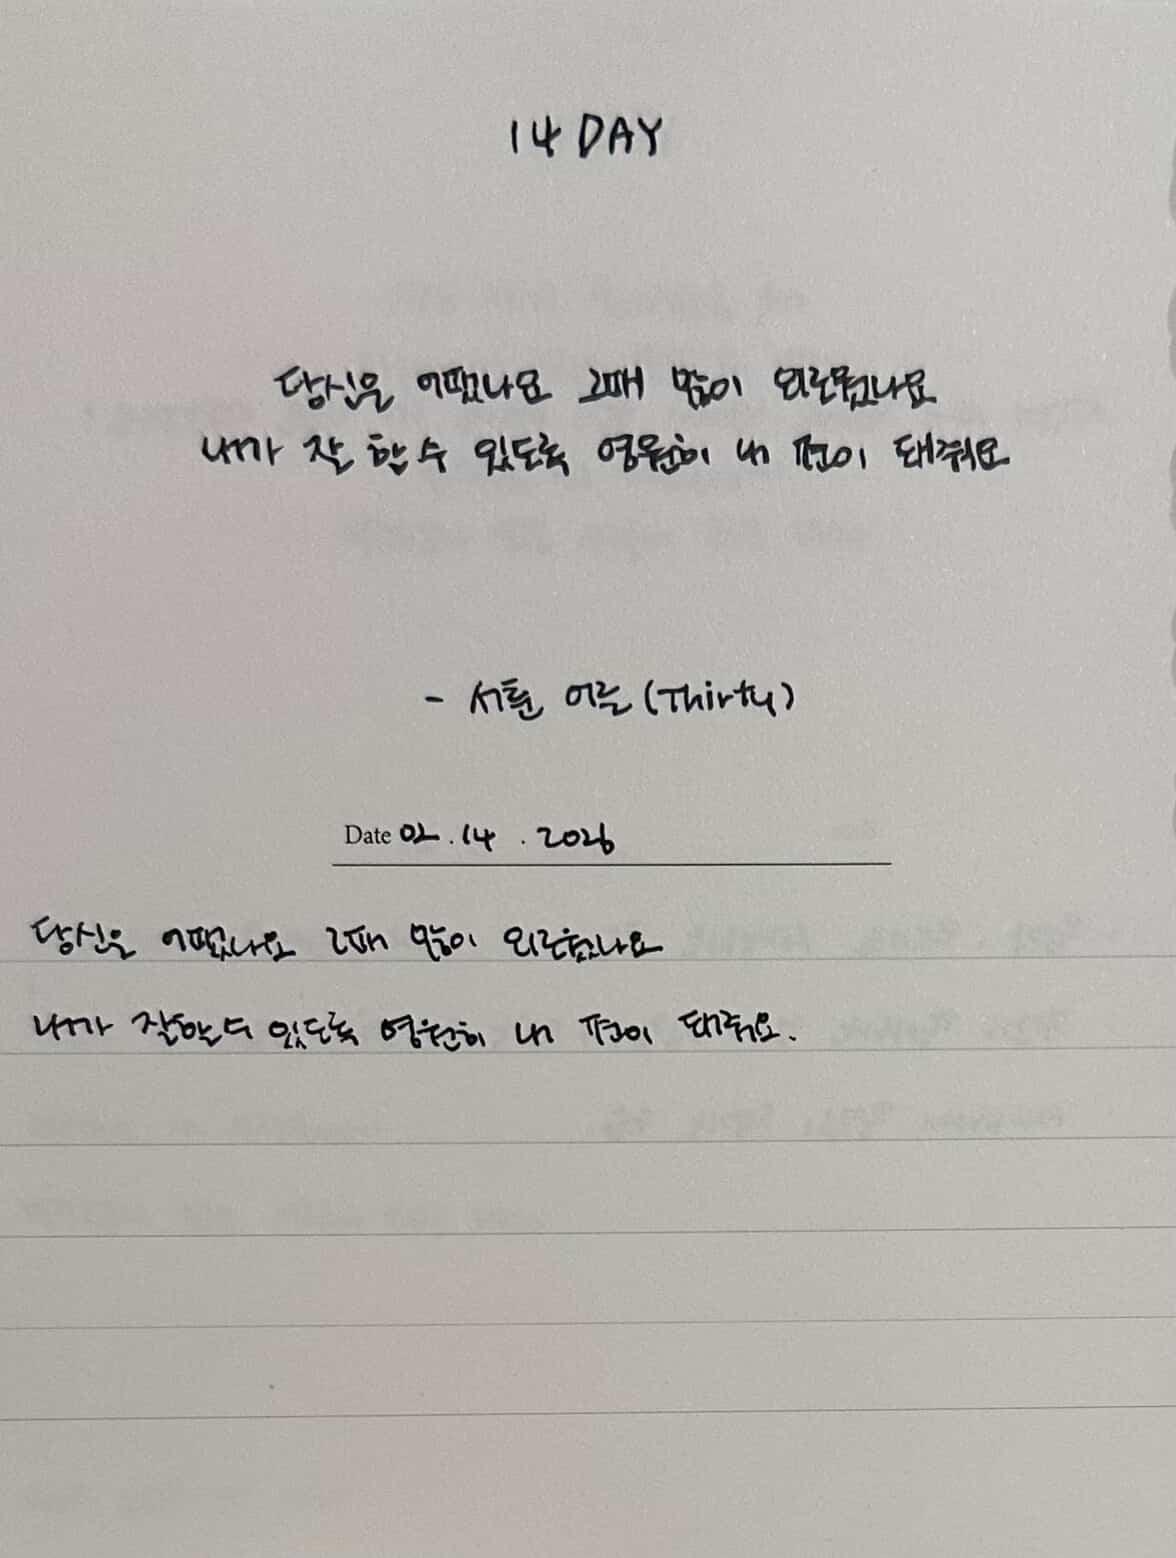 14 DAY
당신은 어땠나요 그때 많이 외로웠나요
내가 잘 할 수 있도록 영원히 내 편이 돼줘요
- 서툰 어른 (Thirty)
Date 02 . 14 . 2026
당신은 어땠나요 그때 많이 외로웠나요
내가 잘할 수 있도록 영원히 내 편이 돼줘요.